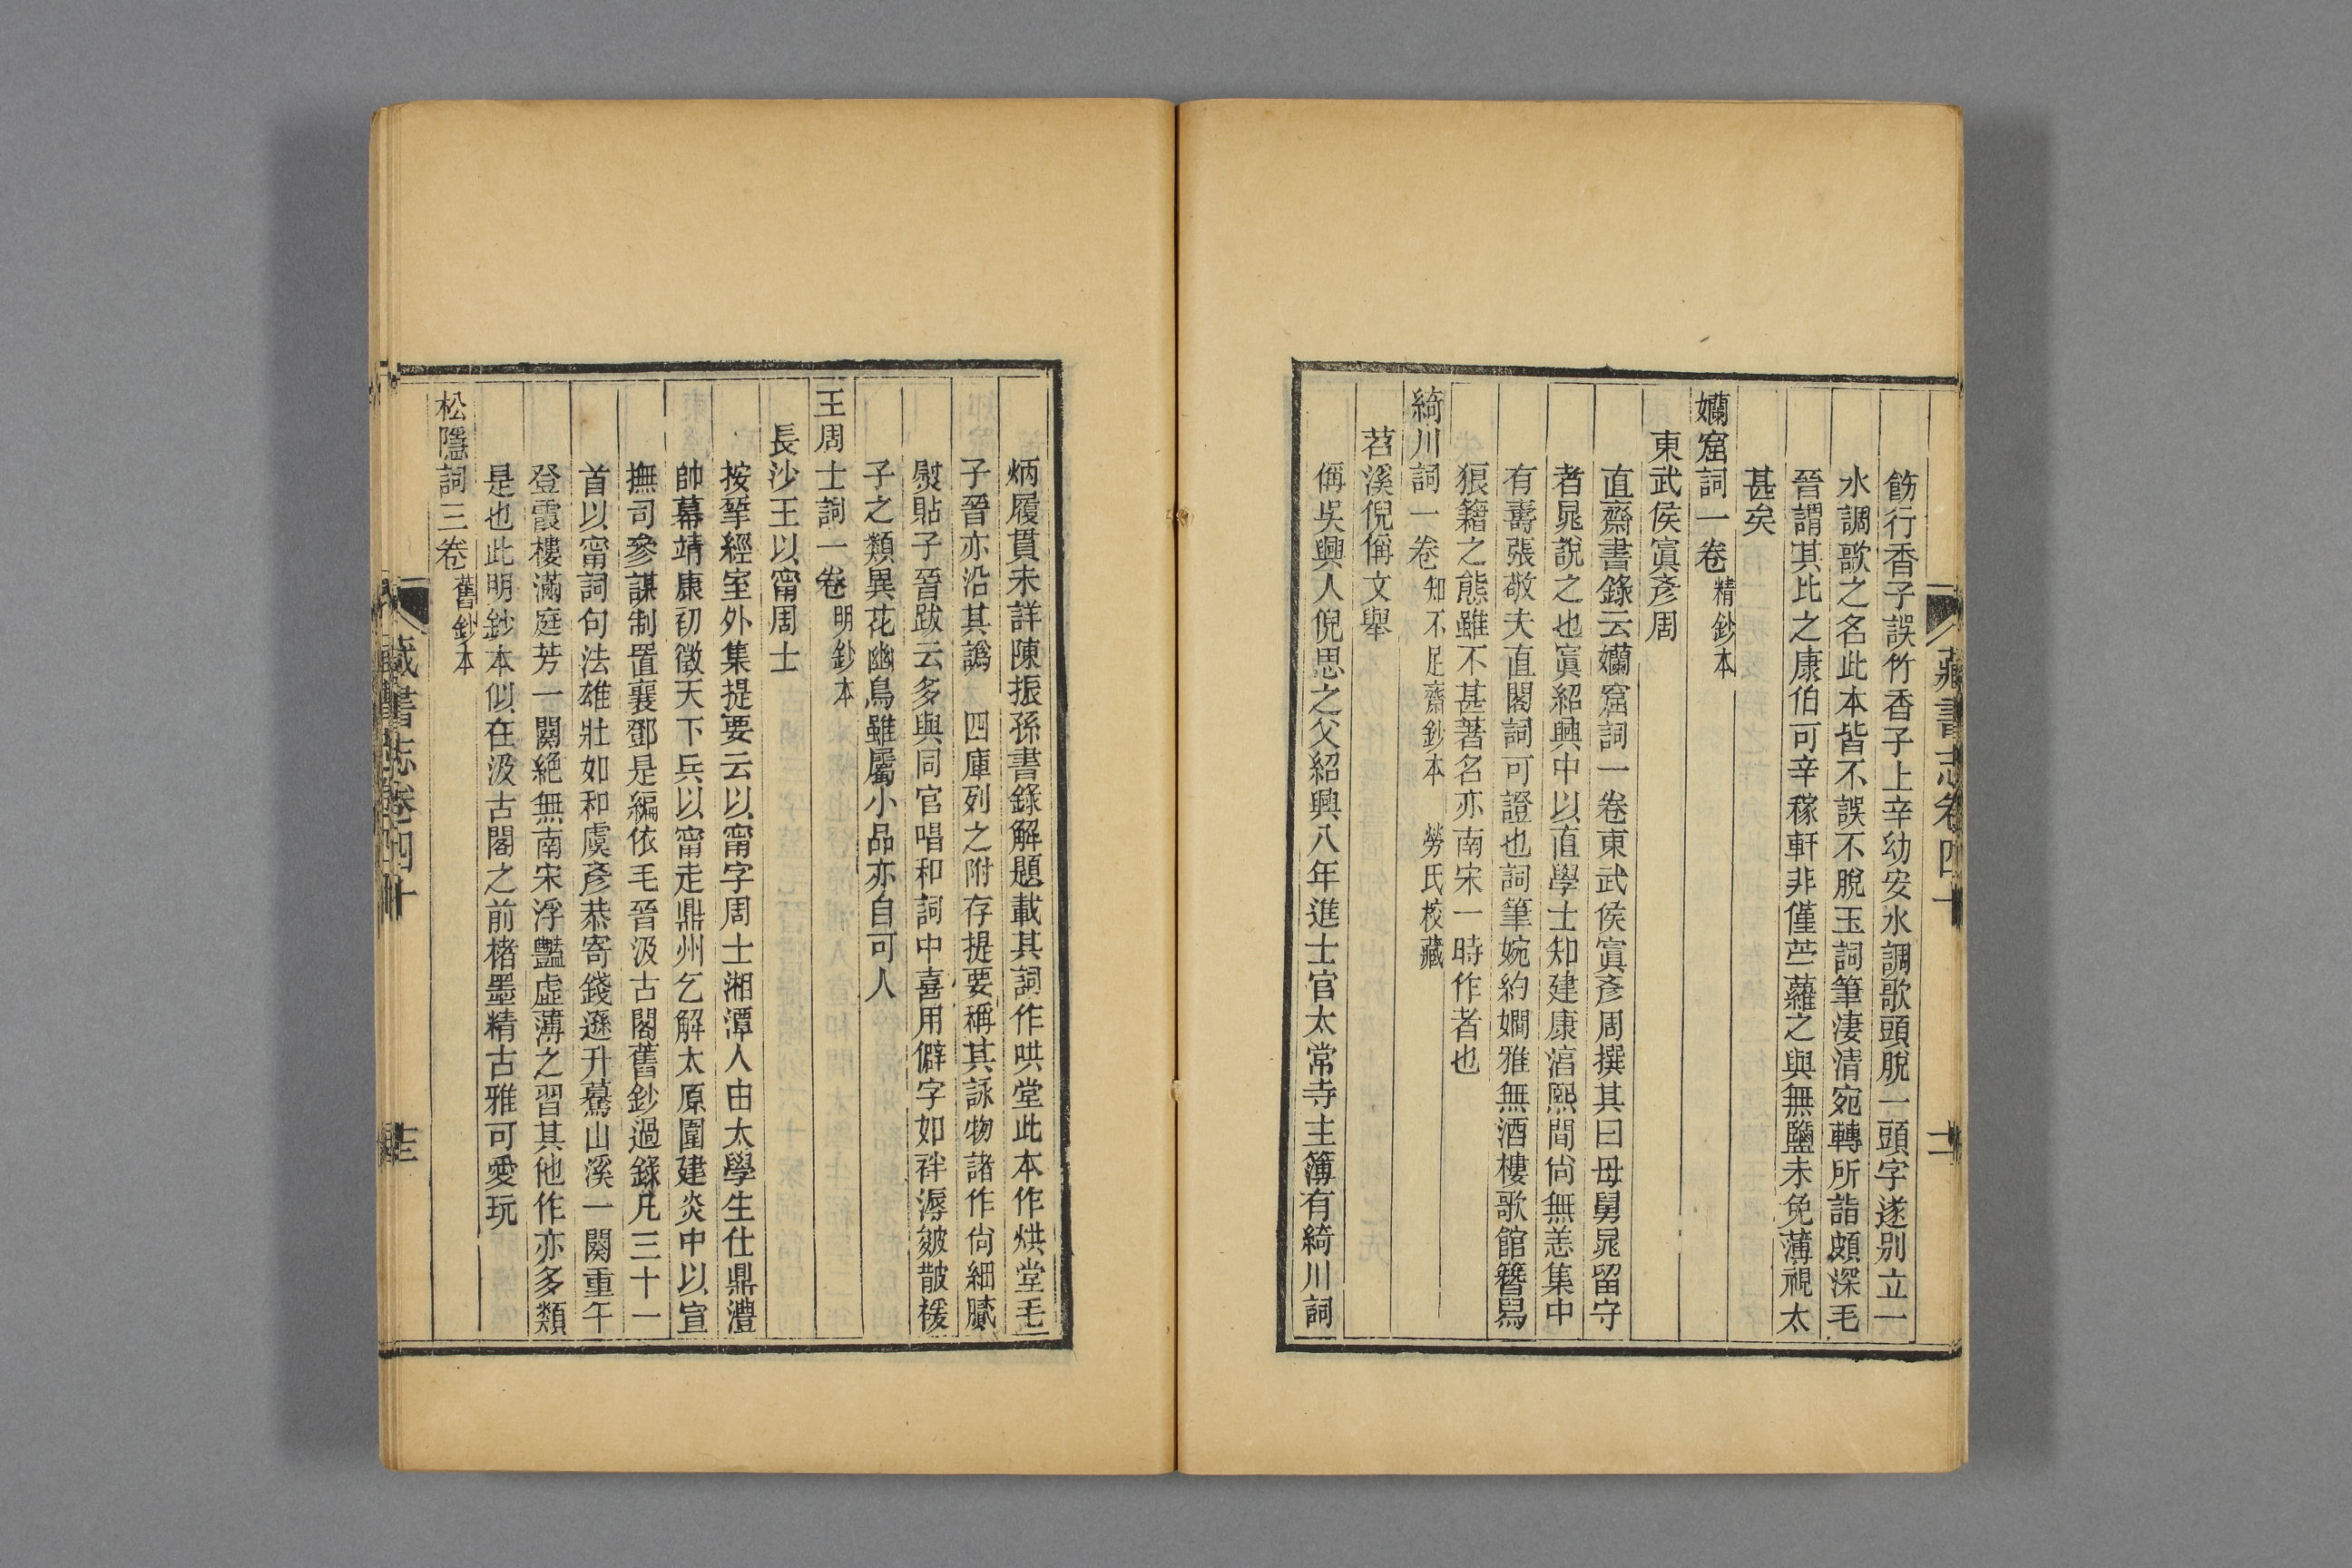 藏書志卷四十
飭行香子誤竹香子上辛幼安水調歌頭脫一頭字遂別立一
水調歌之名此本皆不誤不脫玉詞筆淒清宛轉所詣頗深毛
晉謂其比之康伯可辛稼軒非僅苎蘿之與無鹽未免薄視太
甚矣
孏窟詞一卷 精鈔本
東武侯寘彥周
直齋書錄云孏窟詞一卷東武侯寘彥周撰其曰母舅晁留守
者晁說之也寘紹興中以直學士知建康湻熙間尙無恙集中
有壽張敬夫直閣詞可證也詞筆婉約嫺雅無酒樓歌館簪舄
狼籍之態雖不甚著名亦南宋一時作者也
綺川詞一卷 知不足齋鈔本 勞氏校藏
苕溪倪偁文舉
偁吳興人倪思之父紹興八年進士官太常寺主簿有綺川詞
炳履貫未詳陳振孫書錄解題載其詞作哄堂此本作烘堂毛
子晉亦沿其譌 四庫列之附存提要稱其詠物諸作尙細膩
熨貼子晉跋云多與同官唱和詞中喜用僻字如祥溽皴皵褑
子之類異花幽鳥雖屬小品亦自可人
王周士詞一卷 明鈔本
長沙王以甯周士
按揅經室外集提要云以甯字周士湘潭人由太學生仕鼎澧
帥幕靖康初徵天下兵以甯走鼎州乞解太原圍建炎中以宣
撫司參謀制置襄鄧是編依毛晉汲古閣舊鈔過錄凡三十一
首以甯詞句法雄壯如和虞彥恭寄錢遜升驀山溪一闋重午
登霞樓滿庭芳一闋絕無南宋浮豔虛薄之習其他作亦多類
是也此明鈔本似在汲古閣之前楮墨精古雅可愛玩
松隱詞三卷 舊鈔本
藏書志卷四十